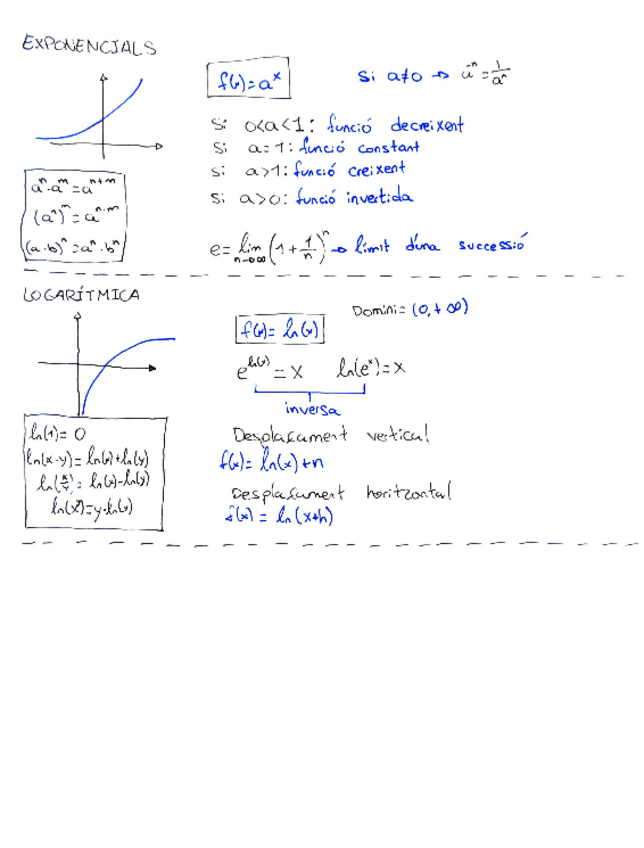 EXPONENCIALS
f(x)=aˣ
Si a≠0 → a⁻ⁿ = 1/aⁿ
Si 0<a<1: funció decreixent
Si a=1: funció constant
Si a>1: funció creixent
Si a>0: funció invertida
aⁿ·aᵐ=aⁿ⁺ᵐ
(aⁿ)ᵐ=aⁿ·ᵐ
(a·b)ⁿ=aⁿ·bⁿ
e= lim n→∞ (1+1/n)ⁿ → límit d'una successió
LOGARÍTMICA
f(x)= ln(x)
Domini= (0,+∞)
e^ln(x) = x ln(eˣ)=x
inversa
ln(1)= 0
ln(x·y)=ln(x)+ln(y)
ln(x/y)= ln(x)-ln(y)
ln(xʸ)=y·ln(x)
Desplaçament vertical
f(x)= ln(x)+n
Desplaçament horitzontal
f(x) = ln(x+h)